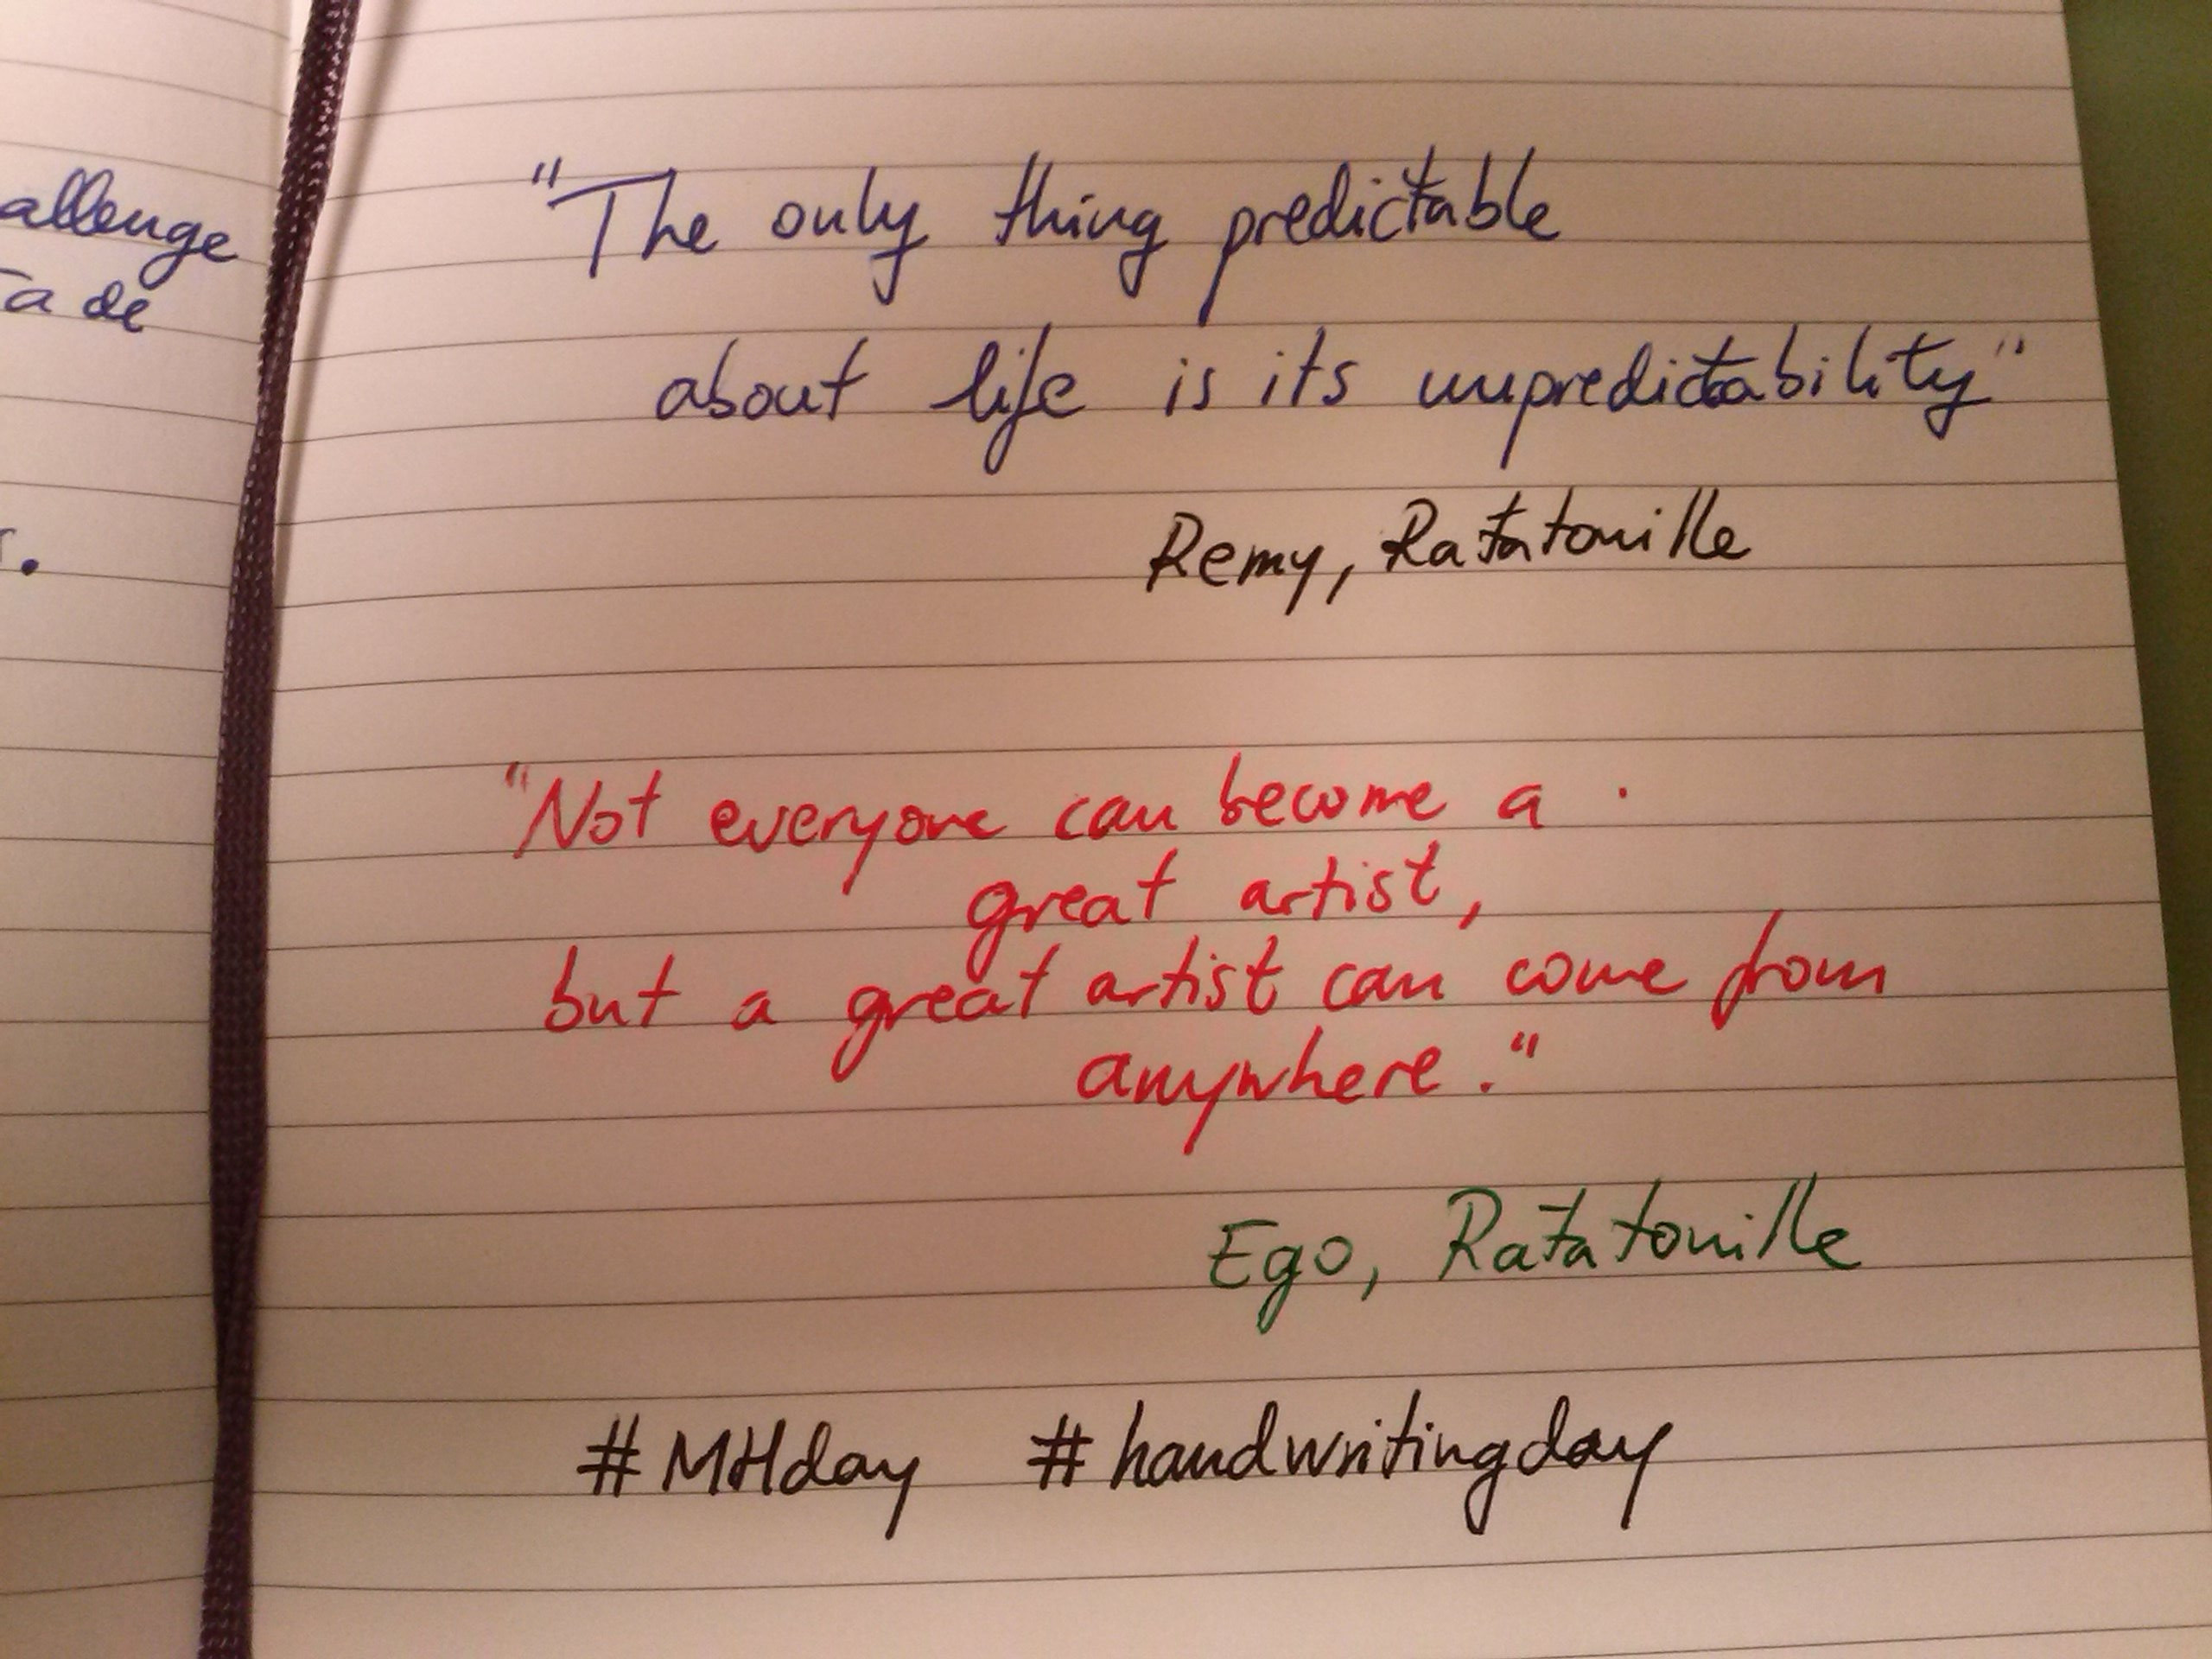 allenge
a de
"The only thing predictable
about life is its unpredictability"
Remy, Ratatouille
"Not everyone can become a
great artist,
but a great artist can come from
anywhere."
Ego, Ratatouille
#MHday #handwritingday